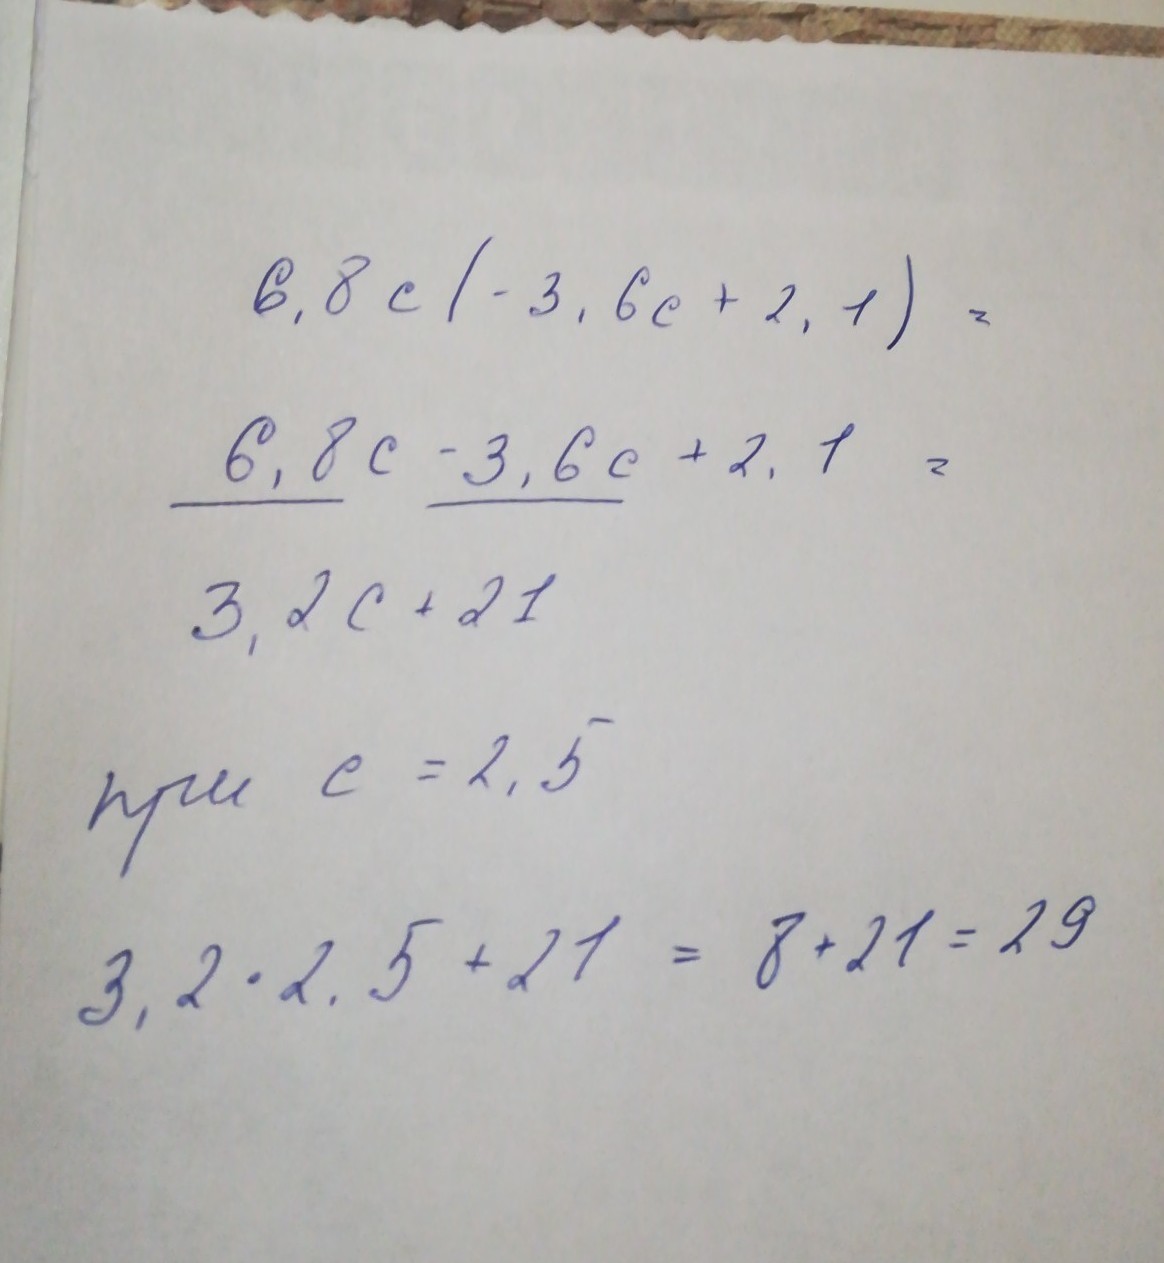 6,8c(-3,6c+2,1)=
6,8c-3,6c+2,1=
3,2c+21
при c=2,5
3,2·2,5+21=8+21=29